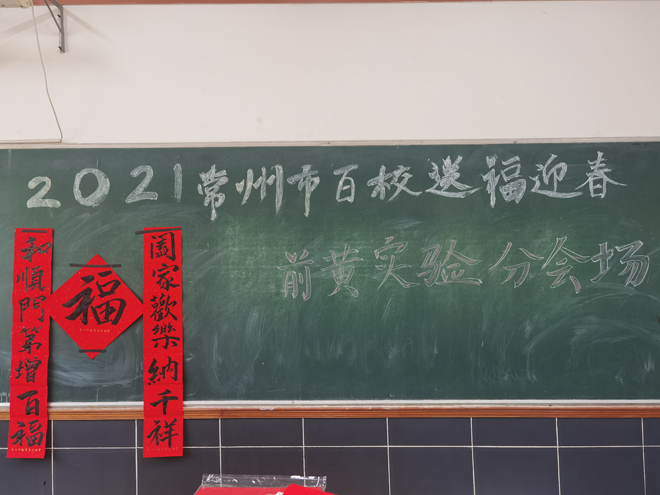 2021常州市百校送福迎春
前黄实验分会场
和順門第增百福
福
闔家歡樂納千祥